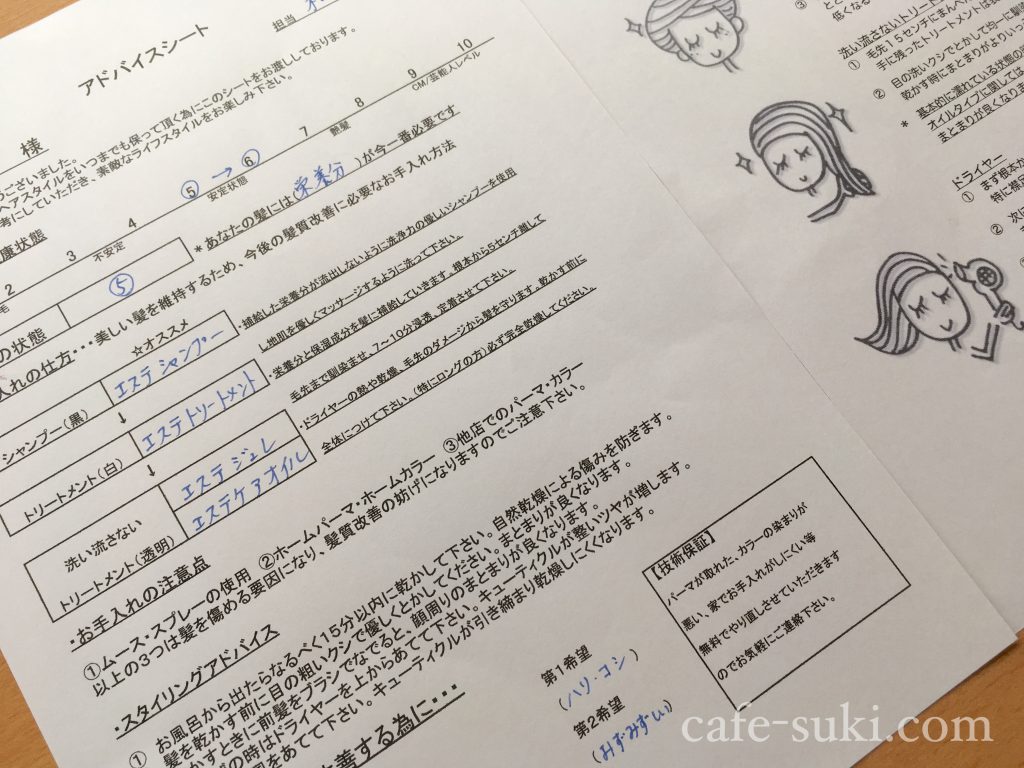 アドバイスシート
担当
様
ございました。
ヘアスタイルをいつまでも保って頂く為にこのシートをお渡ししております。
考にしていただき、素敵なライフスタイルをお楽しみ下さい。
康状態
2 3 4 ⑤→⑥ 7 8 9 10
毛 不安定 安定状態 艶髪 CM/芸能人レベル
の状態 ⑤
*あなたの髪には(栄養分)が今一番必要です
入れの仕方・・・美しい髪を維持するため、今後の髪質改善に必要なお手入れ方法
☆オススメ
シャンプー(黒) エステシャンプー
・補給した栄養分が流出しないように洗浄力の優しいシャンプーを使用
し地肌を優しくマッサージするように洗って下さい。
↓
トリートメント(白) エステトリートメント
・栄養分と保湿成分を髪に補給していきます。根本から5センチ離して
毛先まで馴染ませ、7~10分浸透、定着させて下さい。
↓
洗い流さない
トリートメント(透明)
エステジュレ
エステケアオイル
・ドライヤーの熱や乾燥、毛先のダメージから髪を守ります。乾かす前に
全体につけて下さい。(特にロングの方)必ず完全乾燥してください。
・お手入れの注意点
①ムース・スプレーの使用 ②ホームパーマ・ホームカラー ③他店でのパーマ・カラー
以上の3つは髪を傷める要因になり、髪質改善の妨げになりますのでご注意下さい。
・スタイリングアドバイス
① お風呂から出たらなるべく15分以内に乾かして下さい。自然乾燥による傷みを防ぎます。
髪を乾かす前に目の粗いクシで優しくとかしてください。まとまりが良くなります。
かすときに前髪をブラシでなでると、顔周りのまとまりが良くなります。
の時はドライヤーを上からあてて下さい。キューティクルが整いツヤが増します。
をあてて下さい。キューティクルが引き締まり乾燥しにくくなります。
改善する為に・・・
第1希望
(ハリ・コシ)
第2希望
(みずみずしい)
【技術保証】
パーマが取れた、カラーの染まりが
悪い、家でお手入れがしにくい等
無料でやり直しさせていただきます
のでお気軽にご連絡下さい。
③
低くなる
洗い流さないトリート
① 毛先15センチにまんべ
手に残ったトリートメントは
② 目の洗いクシでとかして均一に馴
乾かす時にまとまりがよりいっ
* 基本的に濡れている状態の
オイルタイプに関しては
まとまりが良くなりま
ドライヤー
① まず根本か
特に襟足
②
cafe-suki.com